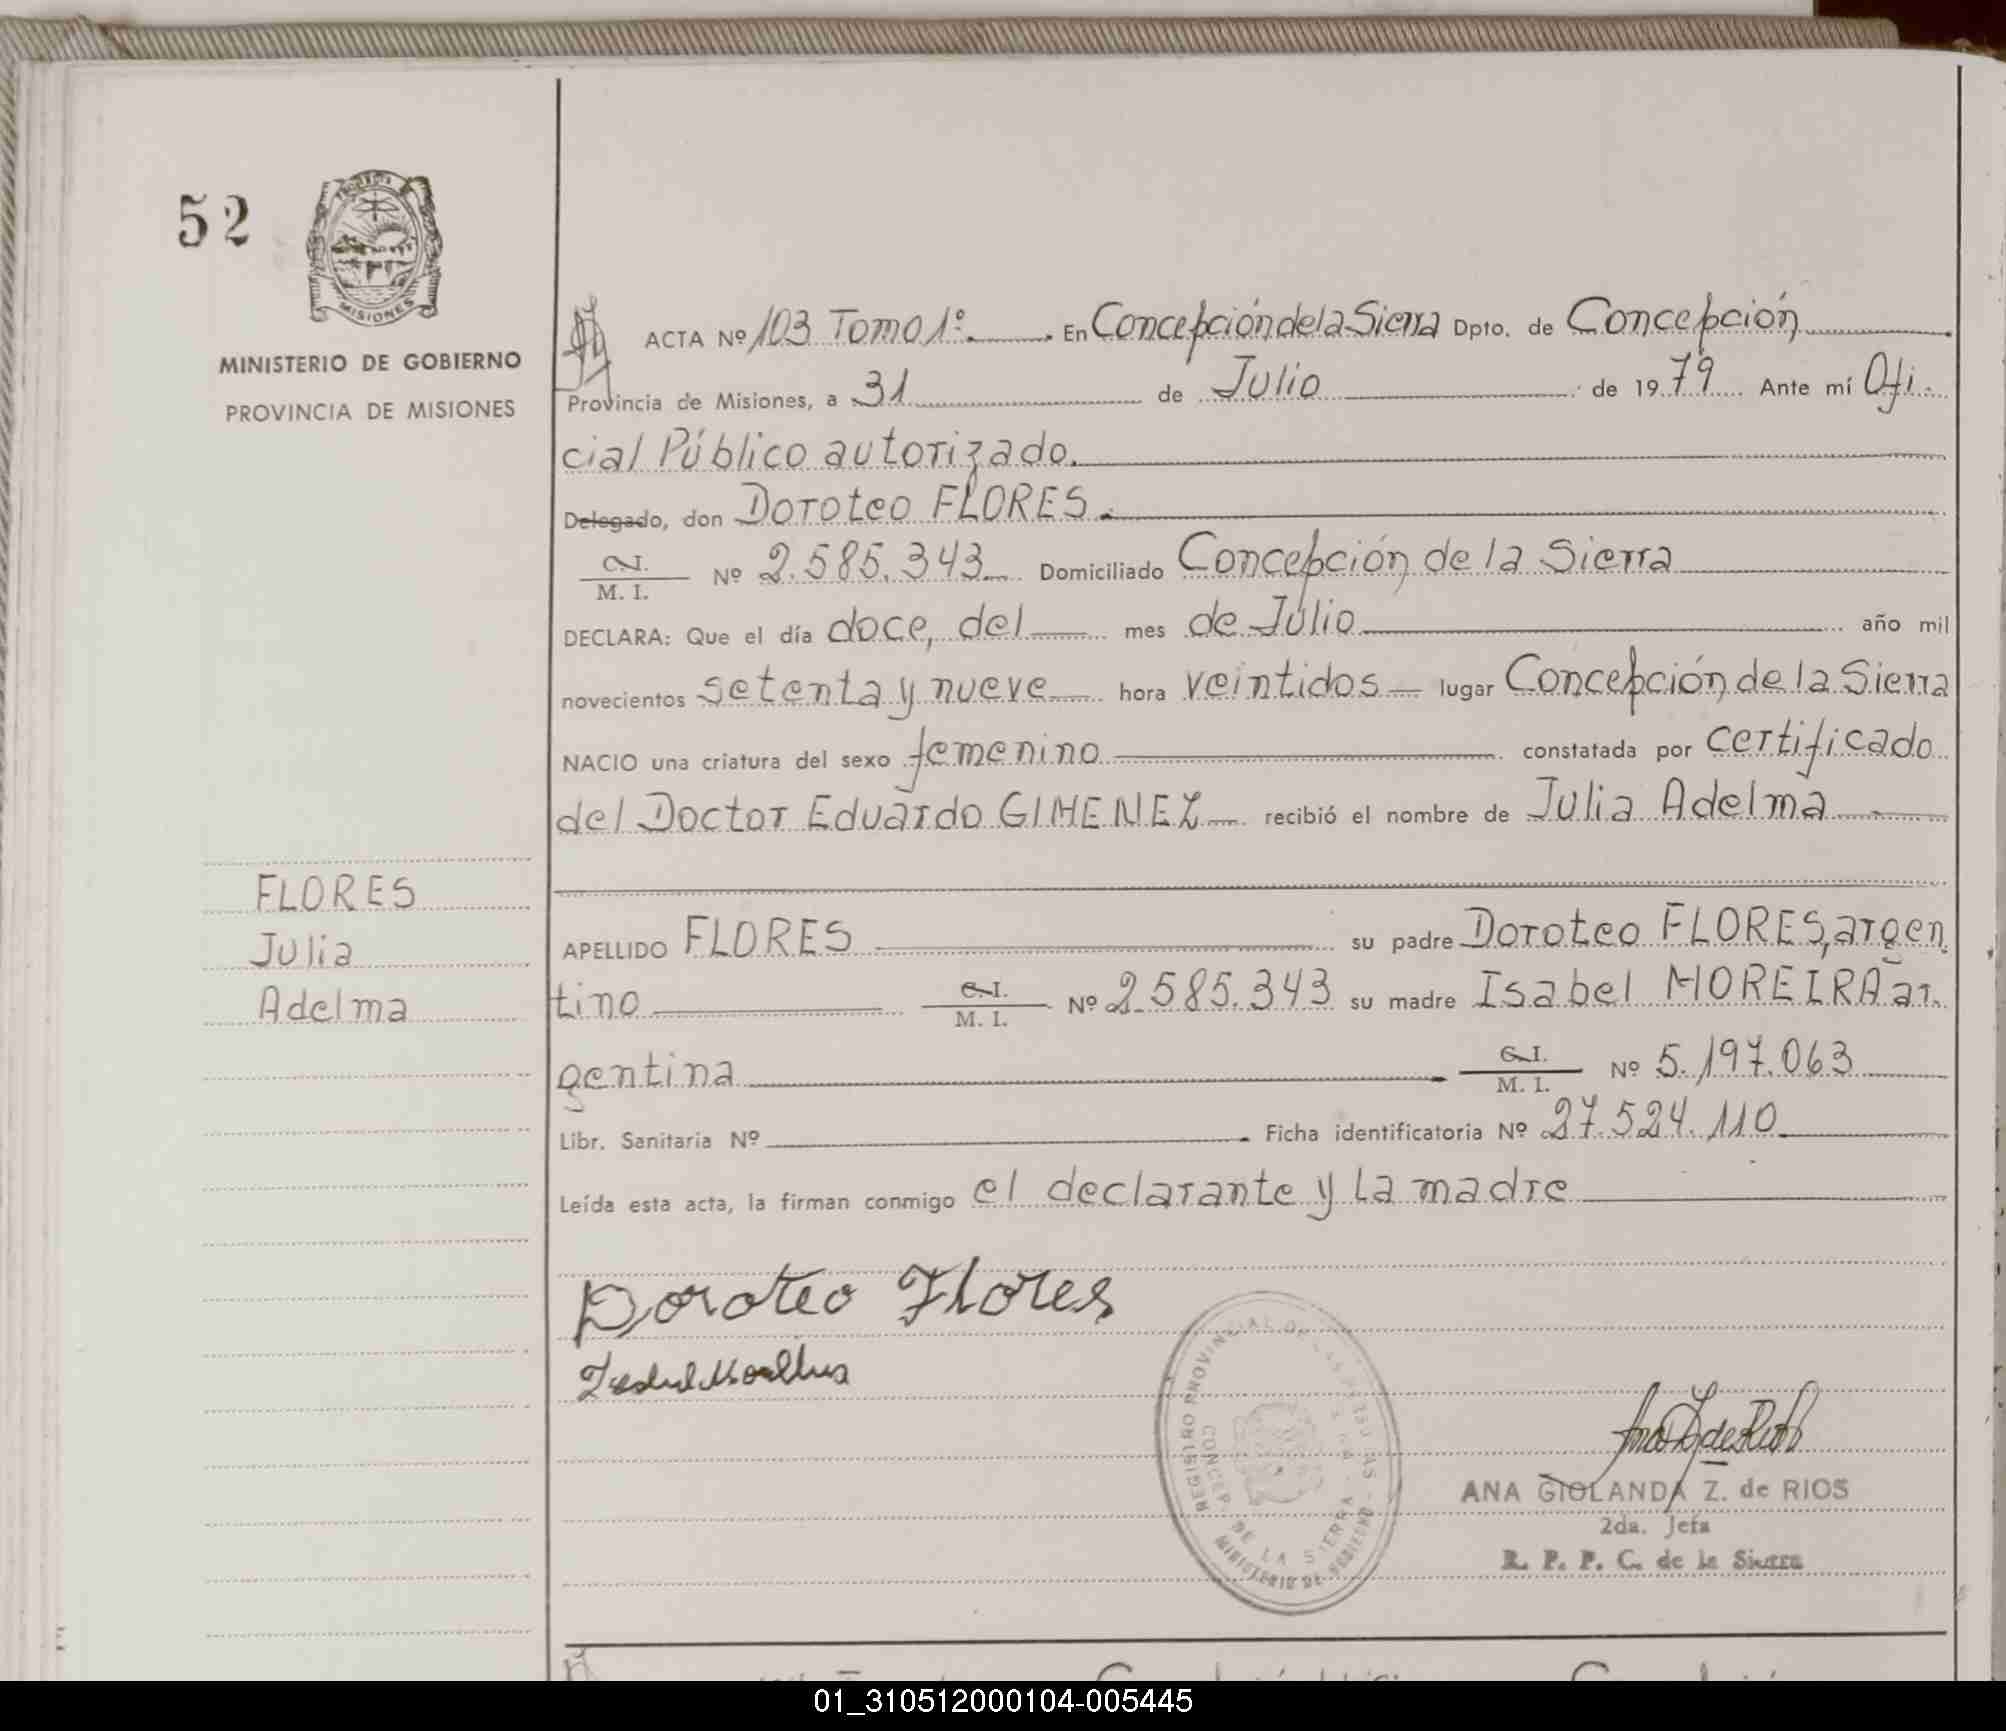 52
MISIONES
MINISTERIO DE GOBIERNO
PROVINCIA DE MISIONES
FLORES
Julia
Adelma
ACTA Nº 103 Tomo 1º. En Concepción de la Sierra Dpto. de Concepción
Provincia de Misiones, a 31 de Julio de 1979 Ante mí Ofi-
cial Público autorizado.
Delegado, don Doroteo FLORES.
C.I. / M. I. Nº 2.585.343 Domiciliado Concepción de la Sierra
DECLARA: Que el día doce, del mes de Julio año mil
novecientos setenta y nueve hora veintidos lugar Concepción de la Sierra
NACIO una criatura del sexo femenino constatada por certificado
del Doctor Eduardo GIMENEZ recibió el nombre de Julia Adelma
APELLIDO FLORES su padre Doroteo FLORES, argen
tino C.I. / M. I. Nº 2.585.343 su madre Isabel MOREIRA ar-
gentina C.I. / M. I. Nº 5.197.063
Libr. Sanitaria Nº Ficha identificatoria Nº 27.524.110
Leída esta acta, la firman conmigo el declarante y la madre
Doroteo Flores
REGISTRO PROVINCIAL DE LAS PERSONAS
CONCEP. DE LA SIERRA
MINISTERIO DE GOBIERNO
ANA GIOLANDA Z. de RIOS
2da. Jefa
R. P. P. C. de la Sierra
01_310512000104-005445